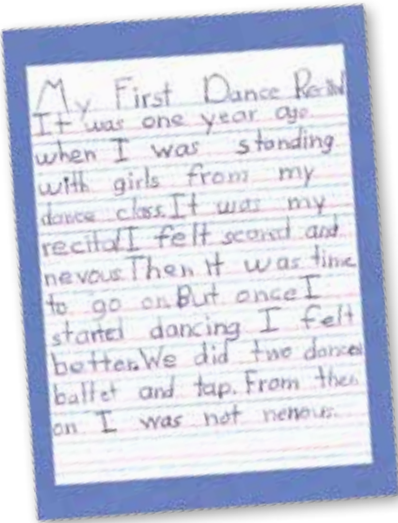 My First Dance Recital
It was one year ago
when I was standing
with girls from my
dance class. It was my
recital I felt scared and
nevous. Then it was time
to go on. But once I
started dancing I felt
better. We did two dances
ballet and tap. From then
on I was not nervous.